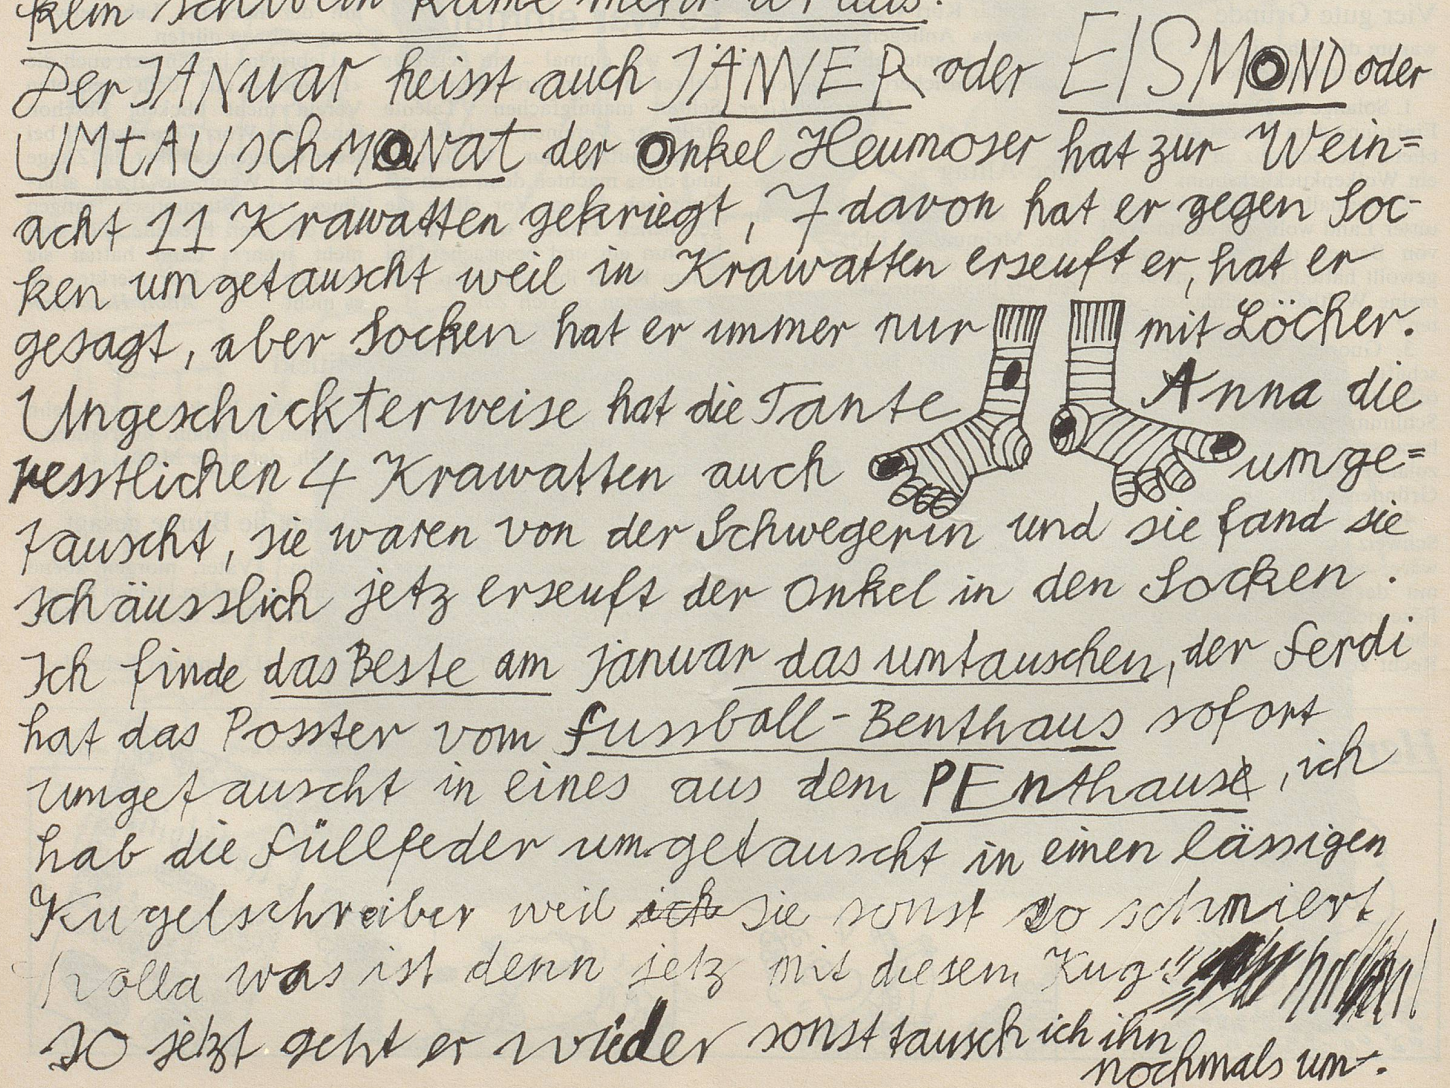 kein schwein käme mehr draus.
Der JANuar heisst auch JÄNNER oder EISMOND oder
UMtAUschMONat der onkel Heumoser hat zur Wein=
acht 11 Krawatten gekriegt, 7 davon hat er gegen Soc-
ken umgetauscht weil in Krawatten erseuft er, hat er
gesagt, aber Socken hat er immer nur mit Löcher.
Ungeschickterweise hat die Tante Anna die
resstlichen 4 Krawatten auch umge=
tauscht, sie waren von der Schwegerin und sie fand sie
schäusslich jetz erseuft der Onkel in den Socken.
Ich finde das Beste am januar das umtauschen, der Ferdi
hat das Posster vom fussball-Benthaus sofort
umgetauscht in eines aus dem PEnthause, ich
hab die füllfeder umgetauscht in einen lässigen
Kugelschreiber weil ich sie sonst so schmiert
holla was ist denn jetz mit diesem Kug!!
so jetzt geht er wieder sonst tausch ich ihn
nochmals um.